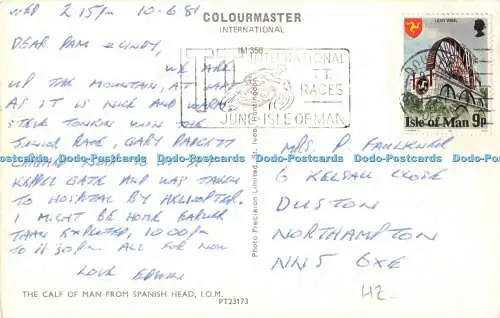 WED 2.15pm 10-6-81
COLOURMASTER
INTERNATIONAL
DEAR PAM & CINDY,
WE ARE
UP THE MOUNTAIN, AT
AS IT IS NICE AND WARM.
STEVE TONKIN WON THE
JUNIOR RACE, GARY PADGETT
CAME OFF
KEPPEL GATE AND WAS TAKEN
TO HOSPITAL BY HELICOPTER.
I MIGHT BE HOME EARLIER
THAN EXPECTED, 10.00pm
TO 11.30pm. ALL FOR NOW
LOVE
THE CALF OF MAN FROM SPANISH HEAD, I.O.M.
PT23173
Photo Precision Limited, St. Ives, Huntingdon
IM 356
INTERNATIONAL
T.T.
RACES
JUNE ISLE OF MAN
LADY ISABELLA
Isle of Man 9p
MRS. P. FAULKNER
6 KELSALL CLOSE
DUSTON
NORTHAMPTON
NN5 6XE
HZ
Dodo-Postcards Dodo-Postcards Dodo-Postcards Dodo-Postcards Dodo-Postcards